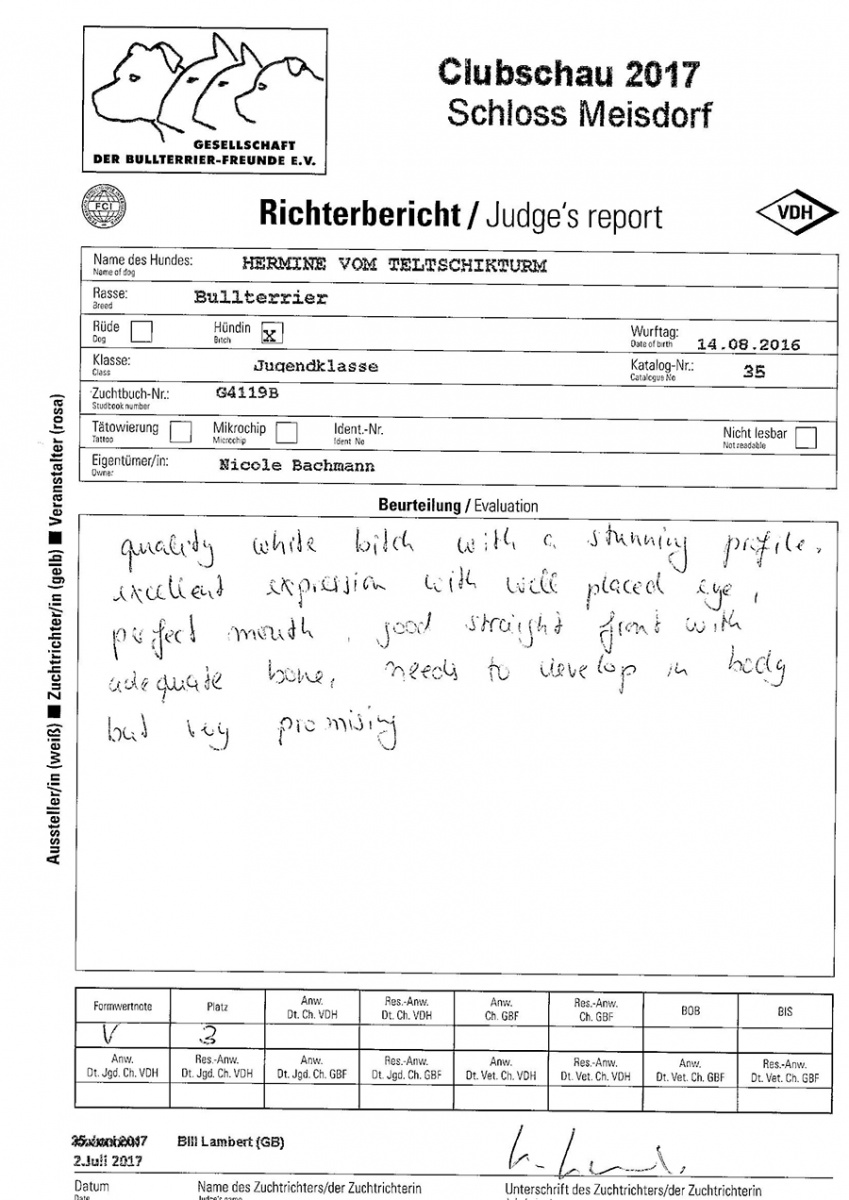 GESELLSCHAFT
DER BULLTERRIER-FREUNDE E.V.
Clubschau 2017
Schloss Meisdorf
FCI
Richterbericht / Judge's report
VDH
Name des Hundes: HERMINE VOM TELTSCHIKTURM
Name of dog
Rasse: Bullterrier
Breed
Rüde Hündin X Wurftag: 14.08.2016
Dog Bitch Date of birth
Klasse: Jugendklasse Katalog-Nr.: 35
Class Catalogue No
Zuchtbuch-Nr.: G4119B
Studbook number
Tätowierung Mikrochip Ident.-Nr. Nicht lesbar
Tattoo Microchip Ident No Not readable
Eigentümer/in: Nicole Bachmann
Owner
Aussteller/in (weiß) ■ Zuchtrichter/in (gelb) ■ Veranstalter (rosa)
Beurteilung / Evaluation
quality white bitch with a stunning profile.
excellent expression with well placed eye,
perfect mouth, good straight front with
adequate bone, needs to develop in body
but very promising
Formwertnote Platz Anw. Dt. Ch. VDH Res.-Anw. Dt. Ch. VDH Anw. Ch. GBF Res.-Anw. Ch. GBF BOB BIS
V 3
Anw. Dt. Jgd. Ch. VDH Res.-Anw. Dt. Jgd. Ch. VDH Anw. Dt. Jgd. Ch. GBF Res.-Anw. Dt. Jgd. Ch. GBF Anw. Dt. Vet. Ch. VDH Res.-Anw. Dt. Vet. Ch. VDH Anw. Dt. Vet. Ch. GBF Res.-Anw. Dt. Vet. Ch. GBF
2017 Bill Lambert (GB)
2.Juli 2017
Datum Name des Zuchtrichters/der Zuchtrichterin Unterschrift des Zuchtrichters/der Zuchtrichterin